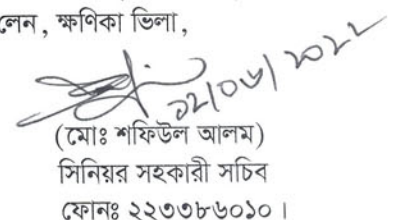 লেন, ক্ষণিকা ভিলা,
১২/০৬/২০২২
(মোঃ শফিউল আলম)
সিনিয়র সহকারী সচিব
ফোনঃ ২২৩৩৮৬০১০।